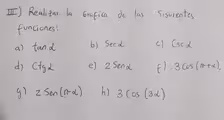 III) Realizar la Grafica de las Siguientes
funciones:
a) tan α b) Sec α c) Csc α
d) Ctg α e) 2 Sen α f) 3 Cos (π+α),
g) 2 Sen (π-α) h) 3 Cos (3α)